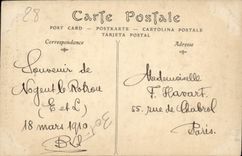 28
Carte Postale
POST CARD — POSTKARTE — CARTOLINA POSTALE
TARJETA POSTAL
Correspondance
Adresse
Souvenir de
Nogent le Rotrou
(E et L)
18 mars 1910
Mademoiselle
F. Havart
55. rue de Chabrol
Paris.